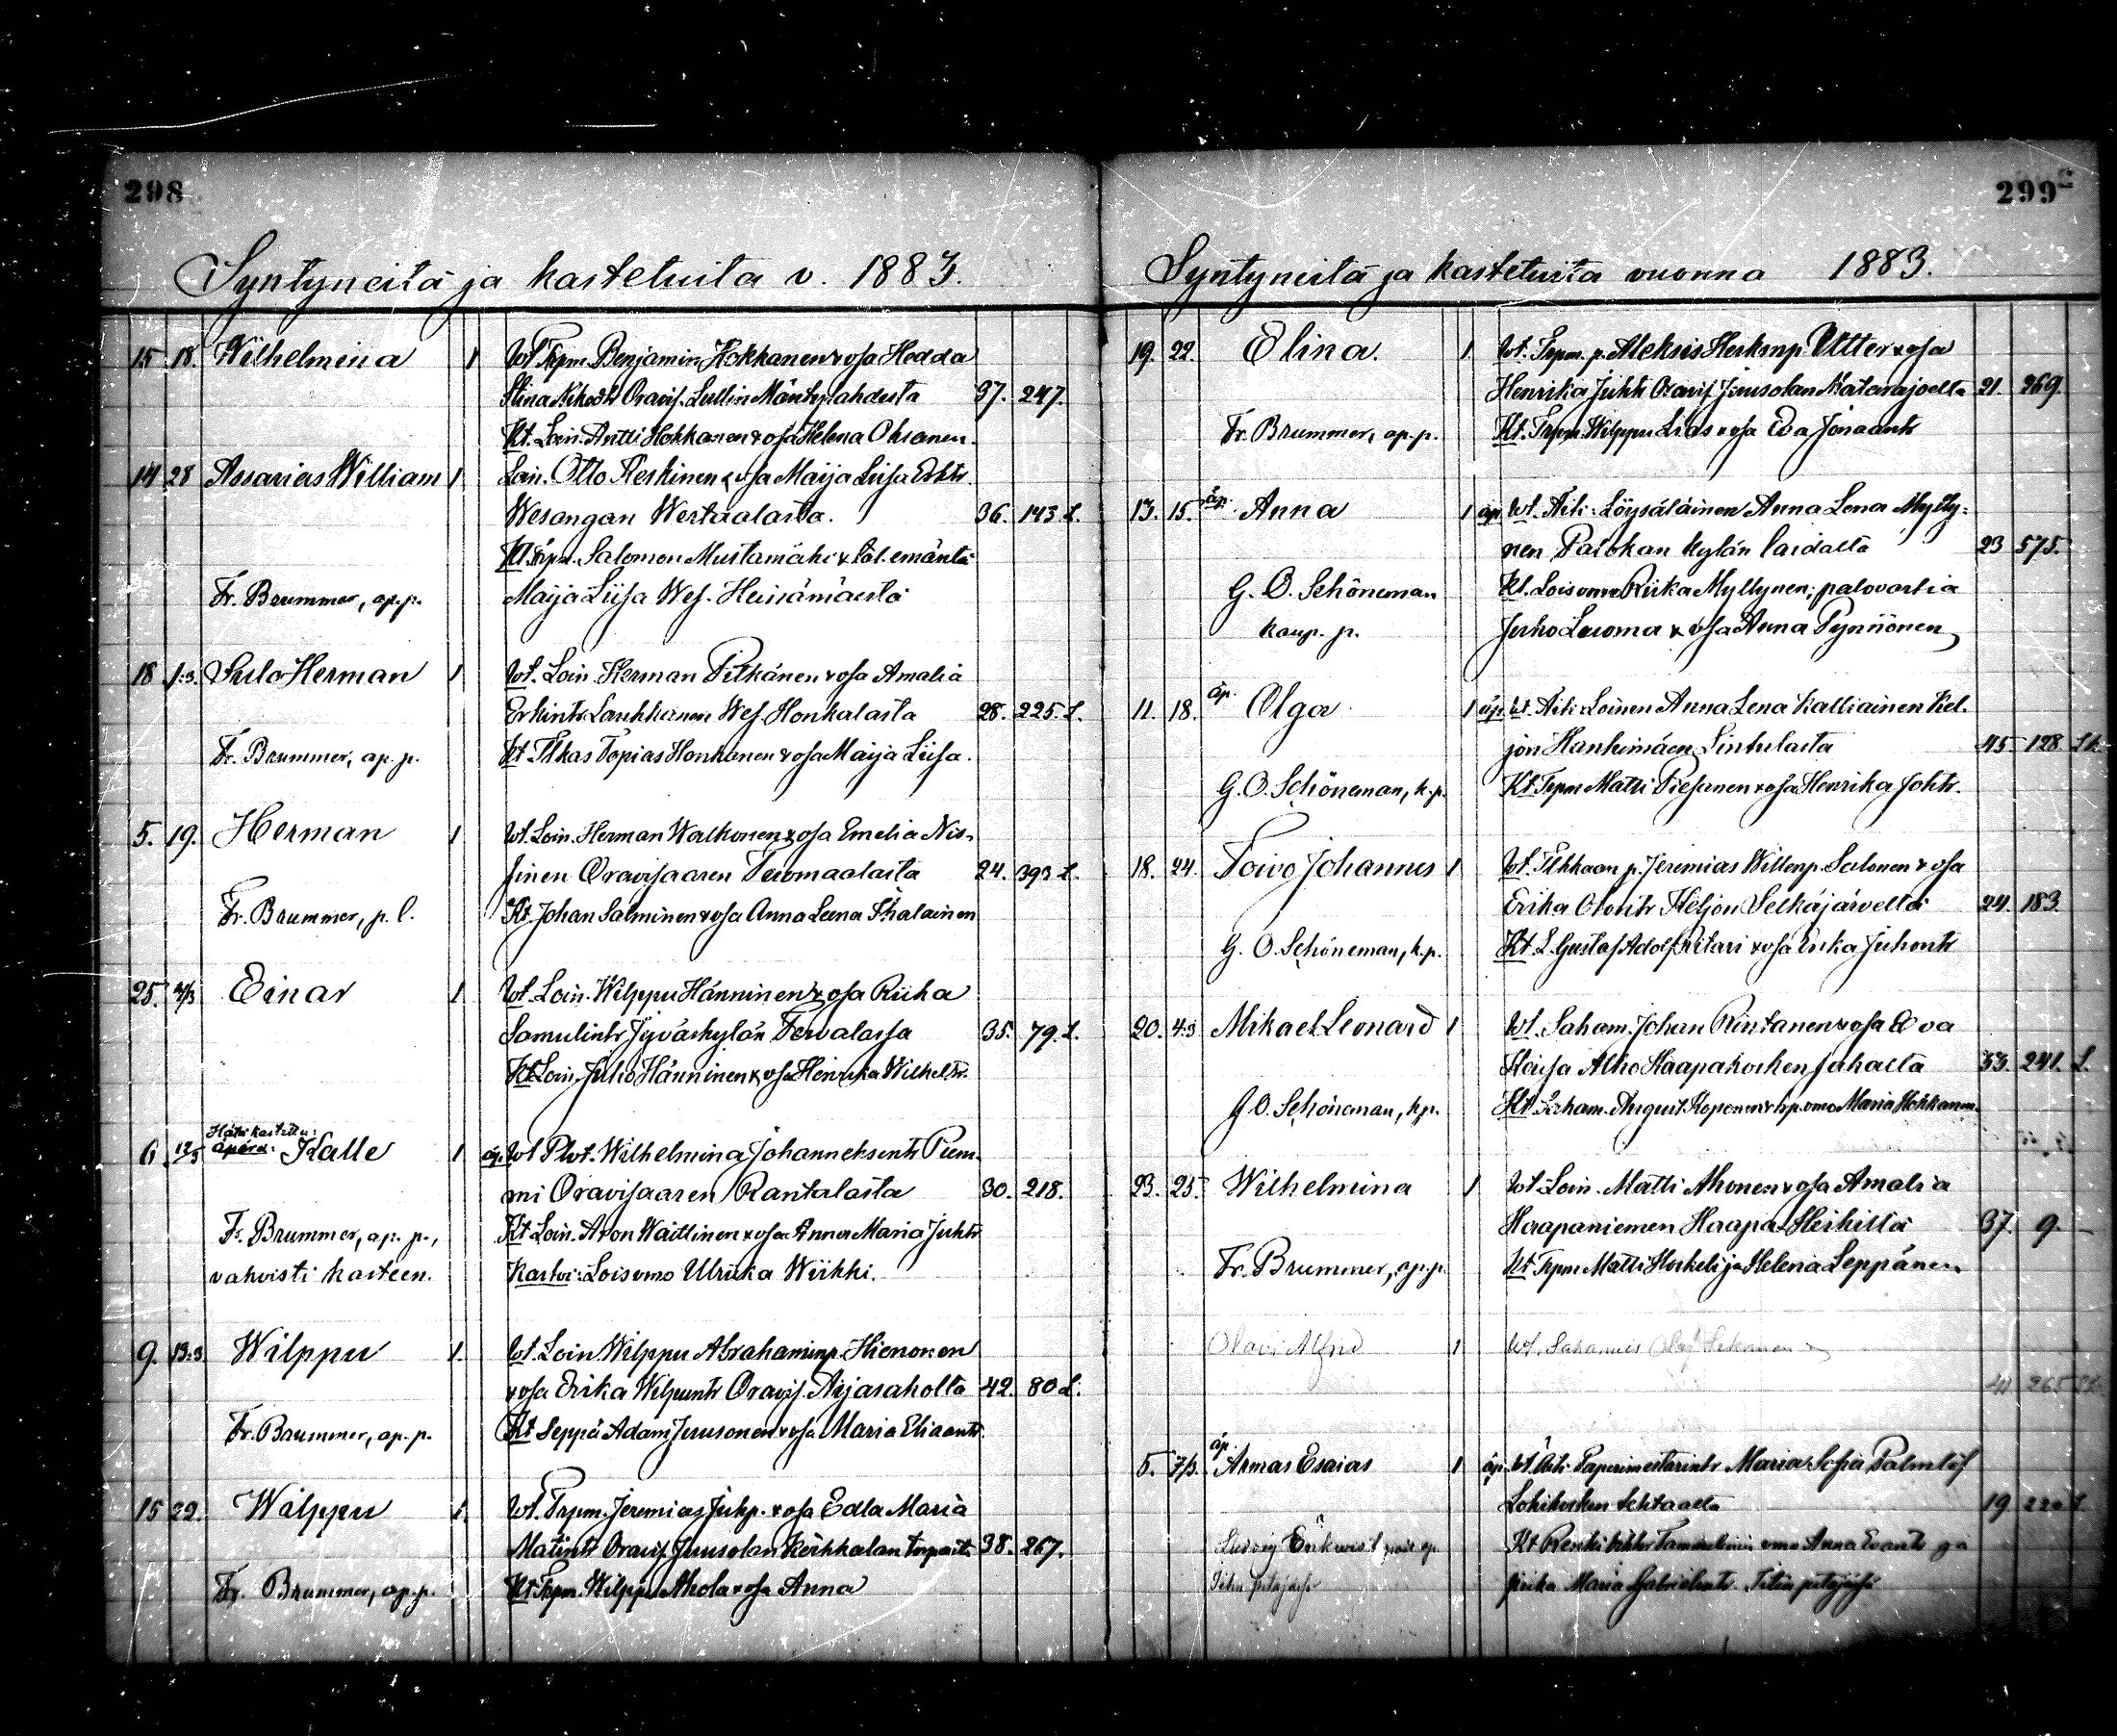 298
Syntyneitä ja kastetuita v. 1883.
15 18. Wilhelmina 1 Wt. Trpm. Benjamin Hokkanen & vsa Hedda
Stina Oravis. Mäntylahdesta 37. 247.
Kt. Loin. Antti Hokkanen & vsa Helena Ohranen.
14 28 Assarias William 1 Loin. Otto Reskinen & vsa Maija Liisa Erktr.
Wesangan Wertaalasta. 36. 143 L.
Kt. Trpm. Salomon Mustamäki & tal. emäntä
Fr. Brummer, ap. p. Maija Liisa Wes. Heinämäestä
18 1.3. Sulo Herman 1 Wt. Loin. Herman Pitkänen & vsa Amalia
Erkintr Laukkanen Wes. Honkalasta 28. 225. L.
Fr. Brummer, ap. p. Kt. Tlkas Topias Honkanen & vsa Maija Liisa.
5. 19. Herman 1 Wt. Loin. Herman Walkonen & vsa Emelia Nis-
sinen Oravisaaren Teromaalasta 24. 393 L.
Fr. Brummer, p. l. Kt. Johan Salminen & vsa Anna Leena
25. 4/3 Einar 1 Wt. Loin. Wilppu Hänninen & vsa Riika
Samulintr Jyväskylän Tervalassa 35. 79. L.
Kt. Loin. Juho Hänninen & vsa Henrika Wilheltr.
Hätäkastettu:
6 12/3 Äpärä: Kalle 1 äp. Wt. Plvt. Wilhelmina Johanneksentr Piem-
mi Oravisaaren Rantalasta 30. 218.
Fr. Brummer, ap. p., Kt. Loin. Aron Waittinen & vsa Anna Maria Juhtr
vahvisti kasteen. Kastoi: Loisvmo Ulriika Wiikki.
9. 13.3 Wilppu 1. Wt. Loin Wilppu Abrahaminp. Hienonen
& vsa Erika Wilpuntr Oravis. Aijasaholta 42. 80 L.
Fr. Brummer, ap. p. Kt Seppä Adam Juusonen & vsa Maria Eliaantr.
15 29. Wilppu 1. Wt. Trpm. Jeremias Juhp. & vsa Edla Maria
Matintr Oravis. Juusolan Keihkalan torpasta 38. 267.
Fr. Brummer, ap. p. Kt. Trpm. Wilppu Ahola & vsa Anna
299
Syntyneitä ja kastetuita vuonna 1883.
19. 22. Elina. 1. Wt. Trpm. p. Aleksis Herkmp. Utter & vsa
Henrika Juhtr Oravis. Juusolan Matarajoelta 21. 269.
Fr. Brummer, ap. p. Kt. Trpm. Wilppu Lias & vsa Eva Jonaantr
13. 15. äp. Anna 1 äp. Wt. Äiti: Löysäläinen Anna Lena Mylly-
nen, Palokan kylän laidalta 23 575.
G. O. Schöneman Kt. Loisvmo Riika Myllynen; palovartia
kaup. p. Juho Luoma & vsa Anna Pynnönen
11. 18. äp. Olga 1 äp. Wt. Äiti: Loinen Anna Lena Kalliainen Kel-
jon Kanhimäen Lintulasta 45 128
G. O. Schöneman, k. p. Kt. Trpm. Matti Piesanen & vsa Henrika Johtr.
18. 24. Toivo Johannes 1 Wt. Tlkkaan p. Jeremias Willenp. Salonen & vsa
Erika Olovitr Keljon Selkäjärveltä 24. 183
G. O. Schöneman, k. p. Kt. L. Gustaf Adolf Ritari & vsa Erika Juhontr
20. 4.3 Mikael Leonard 1 Wt. Saham. Johan Rintanen & vsa Eva
Loisa Alho Haapakosken sahalta 33. 241. L.
G. O. Schöneman, k. p. Kt. Saham. August Koponen & Maria Hokkanen
23. 25. Wilhelmina 1 Wt. Loin. Matti Ahonen & vsa Amalia
Haapaniemen Haapa-Heikiltä 37. 9.
Fr. Brummer, ap. p. Kt. Trpm Matti Hoskeli ja Helena Leppänen
Olavi Alfrid 1 Wt. Sahamies Olof
41 265
5. 7/3. äp. Armas Esaias 1 äp. Wt. Äiti Paperimestarintr Maria Sofia Palmlöf
Lohikosken tehtaalta 19 220 L.
Ludvig Kt. Renki Anna Evantr ja
piika Maria Gabrielintr